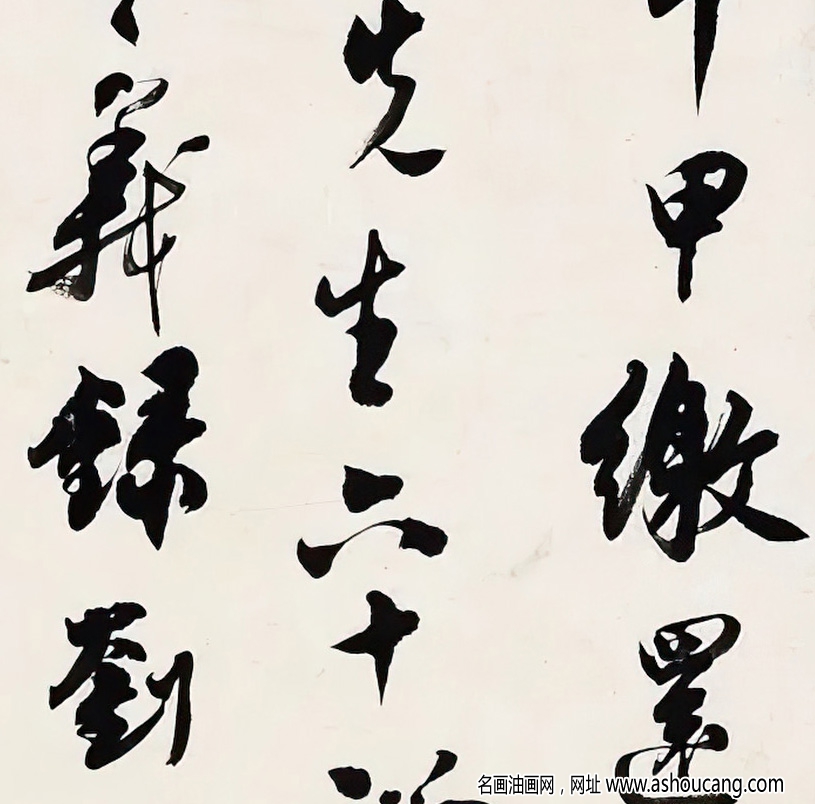 甲繳罪
先生六十
義錄劉
名画油画网，网址 www.ashoucang.com